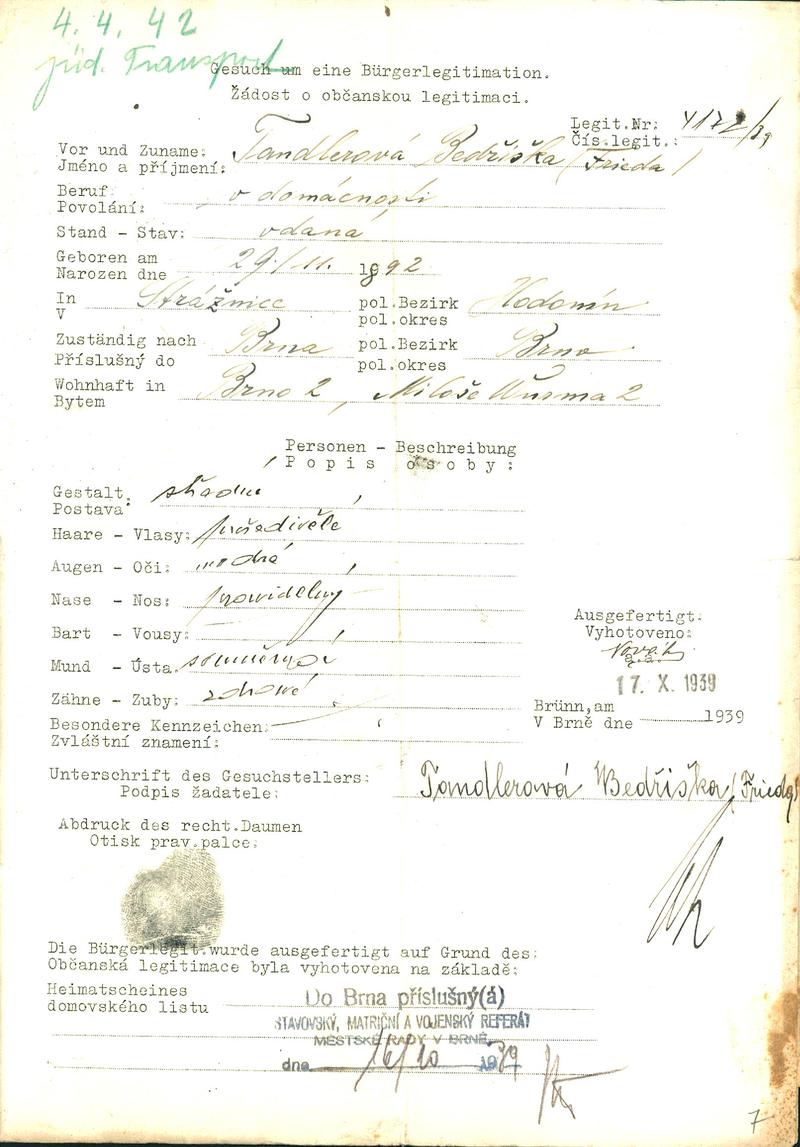 4. 4. 42
jüd. Transport
Gesuch um eine Bürgerlegitimation.
Žádost o občanskou legitimaci.
Legit.Nr: 4172/39
Čís.legit.:
Vor und Zuname: Tandlerová Bedřiška (Frieda)
Jméno a příjmení:
Beruf: v domácnosti
Povolání:
Stand - Stav: vdaná
Geboren am 29./11. 1892
Narozen dne
In Strážnice pol.Bezirk Hodonín
V pol.okres
Zuständig nach Brna pol.Bezirk Brno
Příslušný do pol.okres
Wohnhaft in Brno 2, Miloše Wurma 2
Bytem
Personen - Beschreibung
Popis osoby:
Gestalt: střední
Postava:
Haare - Vlasy: prošedivělé
Augen - Oči: modrá
Nase - Nos: pravidelný
Bart - Vousy:
Mund - Ústa: souměrná
Zähne - Zuby: zdravé
Besondere Kennzeichen:
Zvláštní znamení:
Ausgefertigt:
Vyhotoveno:
Novák
17. X. 1939
Brünn, am
V Brně dne 1939
Unterschrift des Gesuchstellers: Tandlerová Bedřiška (Frieda)
Podpis žadatele:
Abdruck des recht.Daumen
Otisk prav.palce:
Die Bürgerlegit.wurde ausgefertigt auf Grund des:
Občanská legitimace byla vyhotovena na základě:
Heimatscheines Do Brna příslušný(á)
domovského listu
STAVOVSKÝ, MATRIČNÍ A VOJENSKÝ REFERÁT
MĚSTSKÉ RADY V BRNĚ
dne 16/10 1939
7